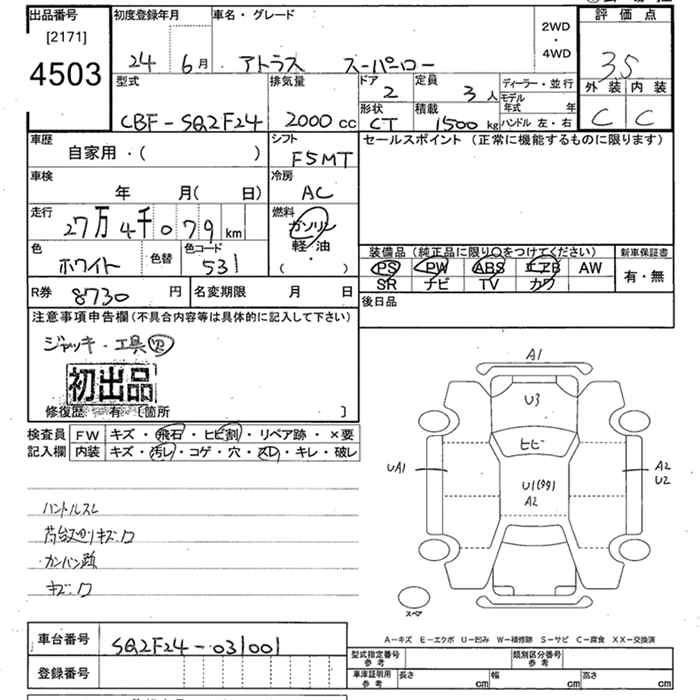 出品番号
[2171]
4503
初度登録年月
24 6月
車名・グレード
アトラス スーパーロー
2WD
・
4WD
評価点
3.5
外装 内装
C C
型式
CBF-SQ2F24
排気量
2000 cc
ドア
2
定員
3 人
形状
CT
積載
1500 kg
ディーラー・並行
モデル年式 年
ハンドル 左・右
車歴
自家用・( )
シフト
F5MT
車検
年 月( 日)
冷房
AC
走行
27万4千079 km
燃料
ガソリン
軽・油
( ・ )
色
ホワイト
色替
色コード
531
R券 8730 円
名変期限 月 日
セールスポイント (正常に機能するものに限ります)
装備品 (純正品に限り○をつけてください)
PS PW ABS エアB AW
SR ナビ TV カワ
新車保証書
有・無
後日品
注意事項申告欄(不具合内容等は具体的に記入して下さい)
ジャッキ・工具
初出品
修復歴 有 [箇所 ]
検査員記入欄
FW キズ・飛石・ヒビ割・リペア跡・×要
内装 キズ・汚レ・コゲ・穴・スレ・キレ・破レ
ハンドルスレ
荷台廻りキズ
カンバン跡
キズ
A1
U3
ヒビ
UA1
U1(99)
A2
A2
U2
スペア
A-キズ E-エクボ U-凹み W-補修跡 S-サビ C-腐食 XX-交換済
車台番号 SQ2F24-031001
登録番号
型式指定番号 参考
類別区分番号 参考
車庫証明用 参考
長さ cm 幅 cm 高さ cm